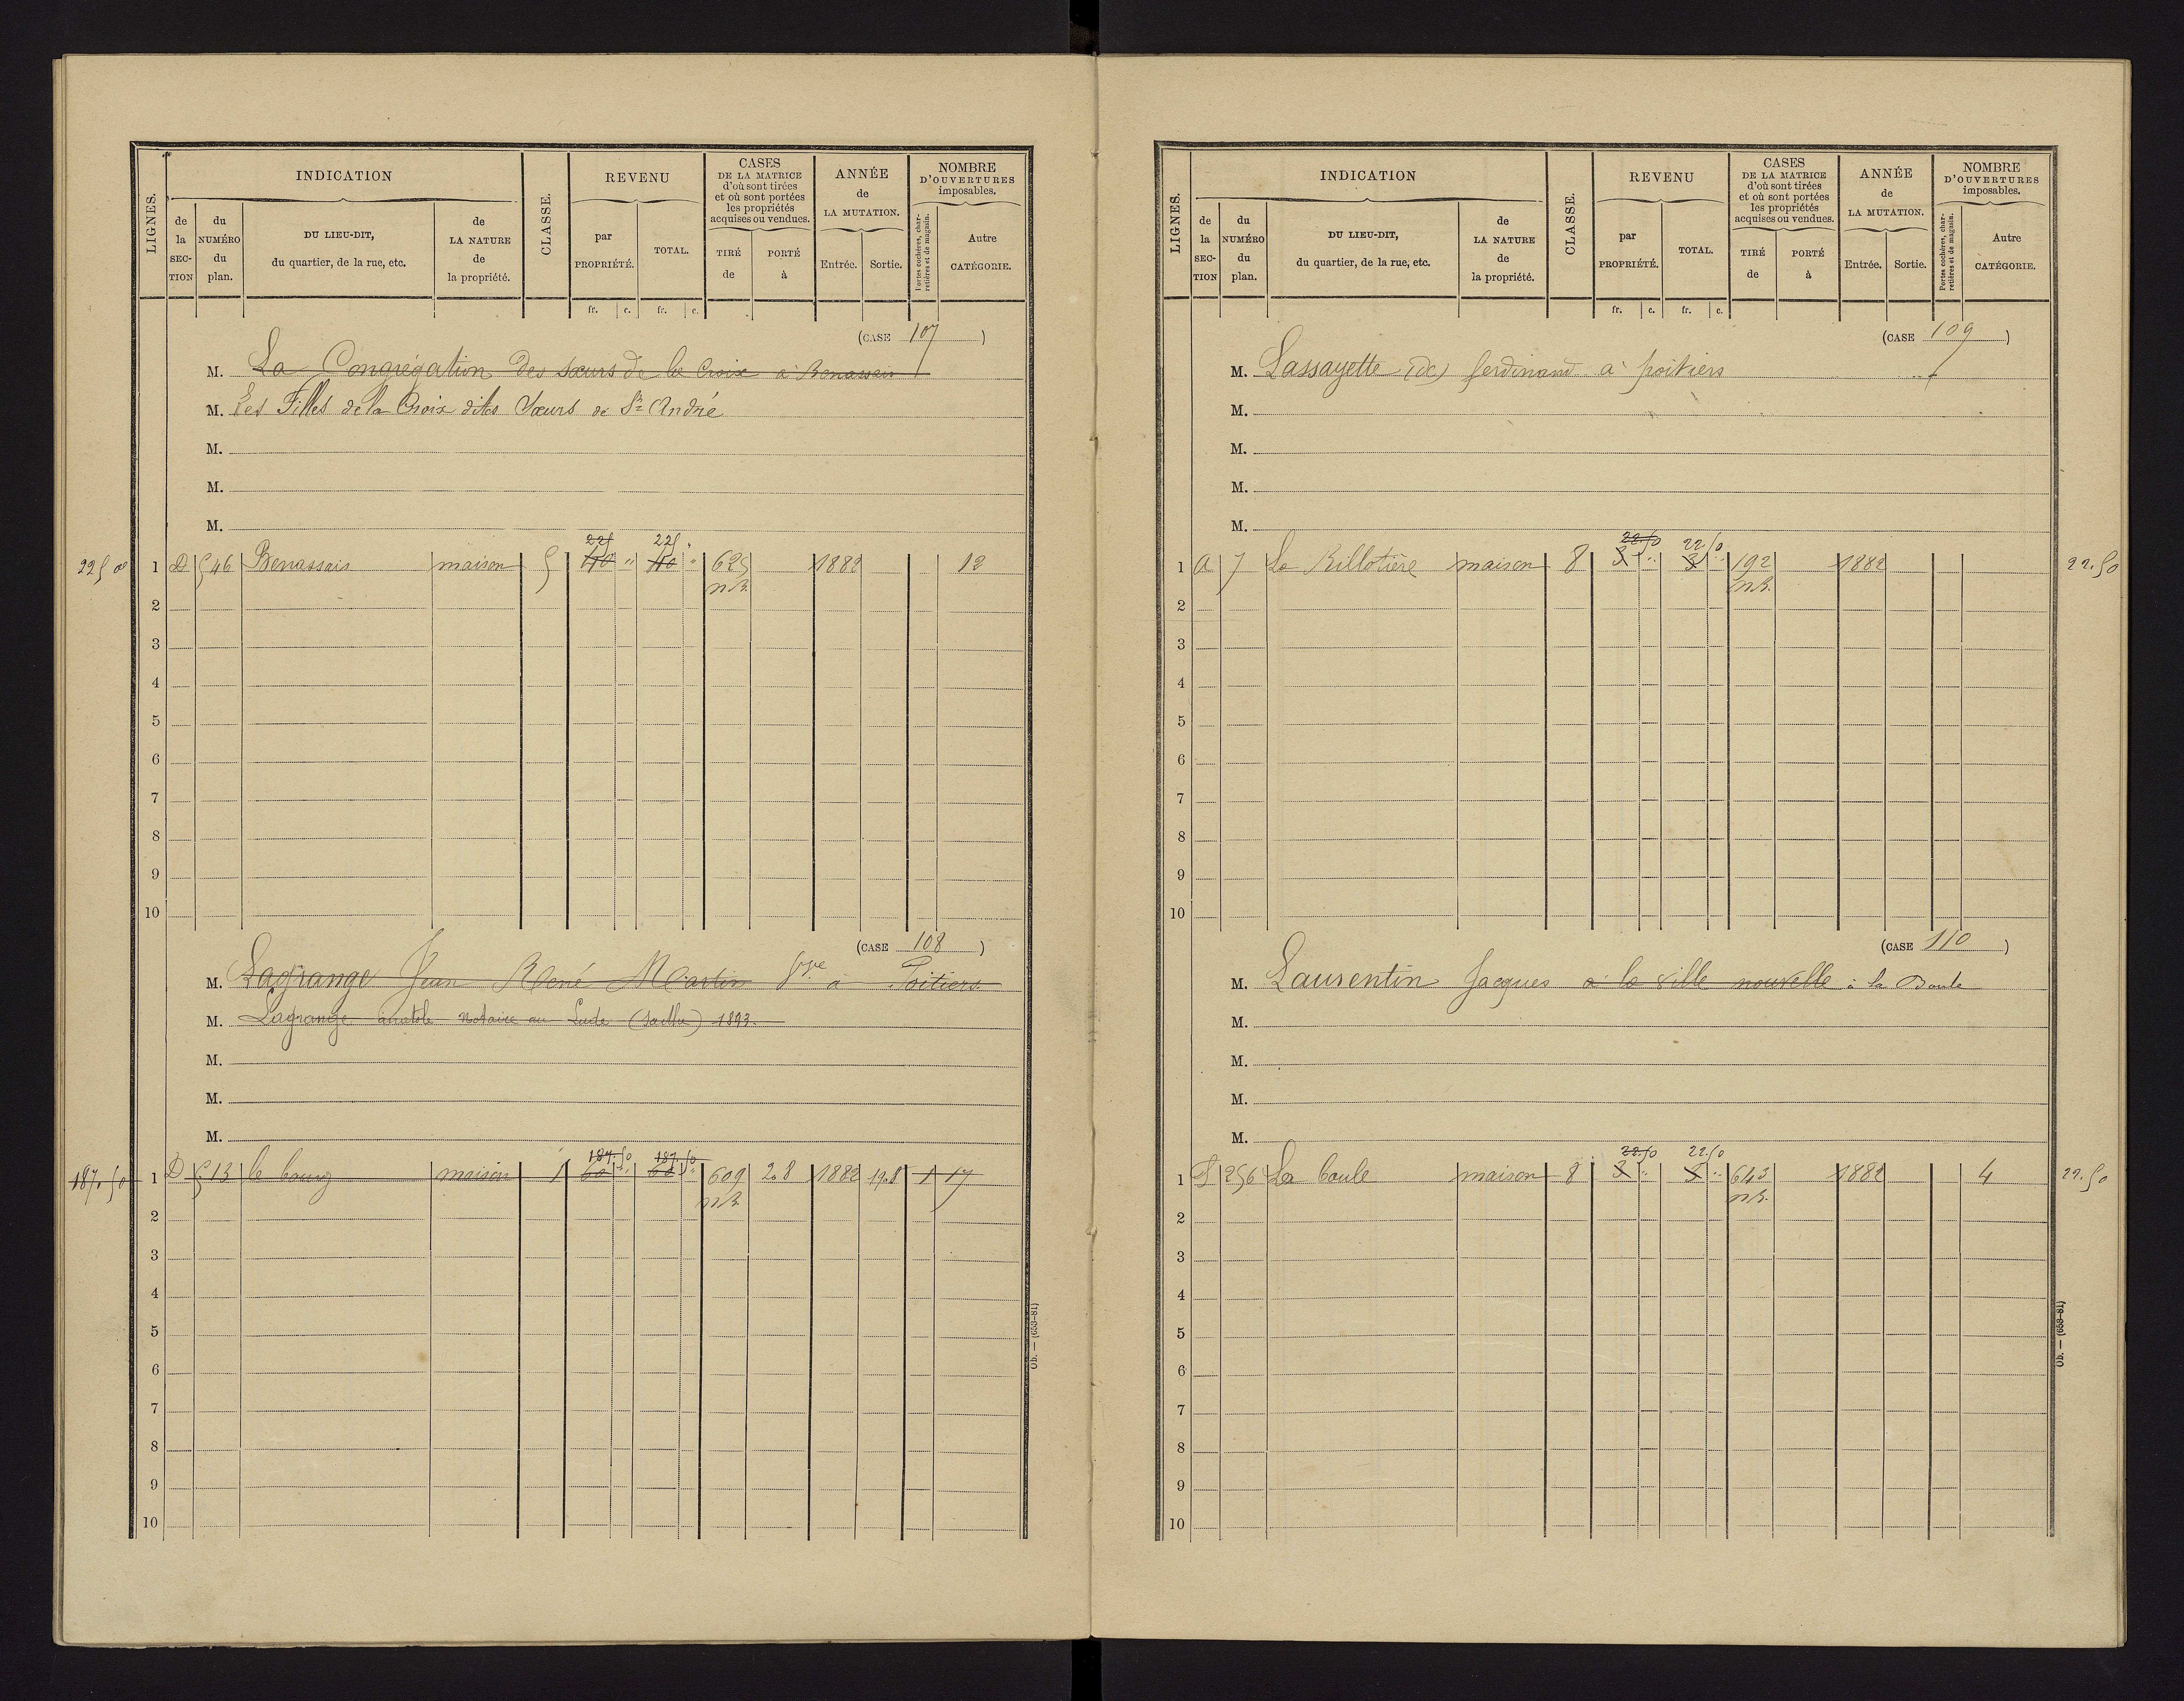 LIGNES.
INDICATION
CLASSE.
REVENU
CASES
DE LA MATRICE
d'où sont tirées
et où sont portées
les propriétés
acquises ou vendues.
ANNÉE
de
LA MUTATION.
NOMBRE
D'OUVERTURES
imposables.
de la SECTION
du NUMÉRO du plan.
DU LIEU-DIT,
du quartier, de la rue, etc.
de LA NATURE de la propriété.
par PROPRIÉTÉ.
TOTAL.
TIRÉ de
PORTÉ à
Entrée.
Sortie.
Portes cochères, charretières et de magasin.
Autre CATÉGORIE.
fr. c. fr. c.
(CASE 107)
M. La Congrégation des sœurs de la Croix à Benassais
M. Les Filles de la Croix dites Sœurs de St André
M.
M.
M.
225 225
225 00 1 D 546 Benassais maison 5 40 " 40 " 625 1882 12
nB.
2
3
4
5
6
7
8
9
10
(CASE 108)
M. Lagrange Jean René Martin à Poitiers
M. Lagrange anatole Notaire au Lude (Sarthe) 1893.
M.
M.
M.
187.50 187.50
187.50 1 D 513 le bourg maison 1 60 " 60 " 609 208 1882 1908 1 17
nB
2
3
4
5
6
7
8
9
10
Ob. — (653-81)
LIGNES.
INDICATION
CLASSE.
REVENU
CASES
DE LA MATRICE
d'où sont tirées
et où sont portées
les propriétés
acquises ou vendues.
ANNÉE
de
LA MUTATION.
NOMBRE
D'OUVERTURES
imposables.
de la SECTION
du NUMÉRO du plan.
DU LIEU-DIT,
du quartier, de la rue, etc.
de LA NATURE de la propriété.
par PROPRIÉTÉ.
TOTAL.
TIRÉ de
PORTÉ à
Entrée.
Sortie.
Portes cochères, charretières et de magasin.
Autre CATÉGORIE.
fr. c. fr. c.
(CASE 109)
M. Lassayette (de) ferdinand à poitiers
M.
M.
M.
M.
22.50 22.50
1 a 7 La Billotière maison 8 3 " 3 " 192 1882 22.50
nB.
2
3
4
5
6
7
8
9
10
(CASE 110)
M. Laurentin Jacques à la ville nouvelle à la Boule
M.
M.
M.
M.
22.50 22.50
1 256 La boule maison 8 3 " 3 " 643 1882 4 22.50
nB.
2
3
4
5
6
7
8
9
10
Ob. — (653-81)